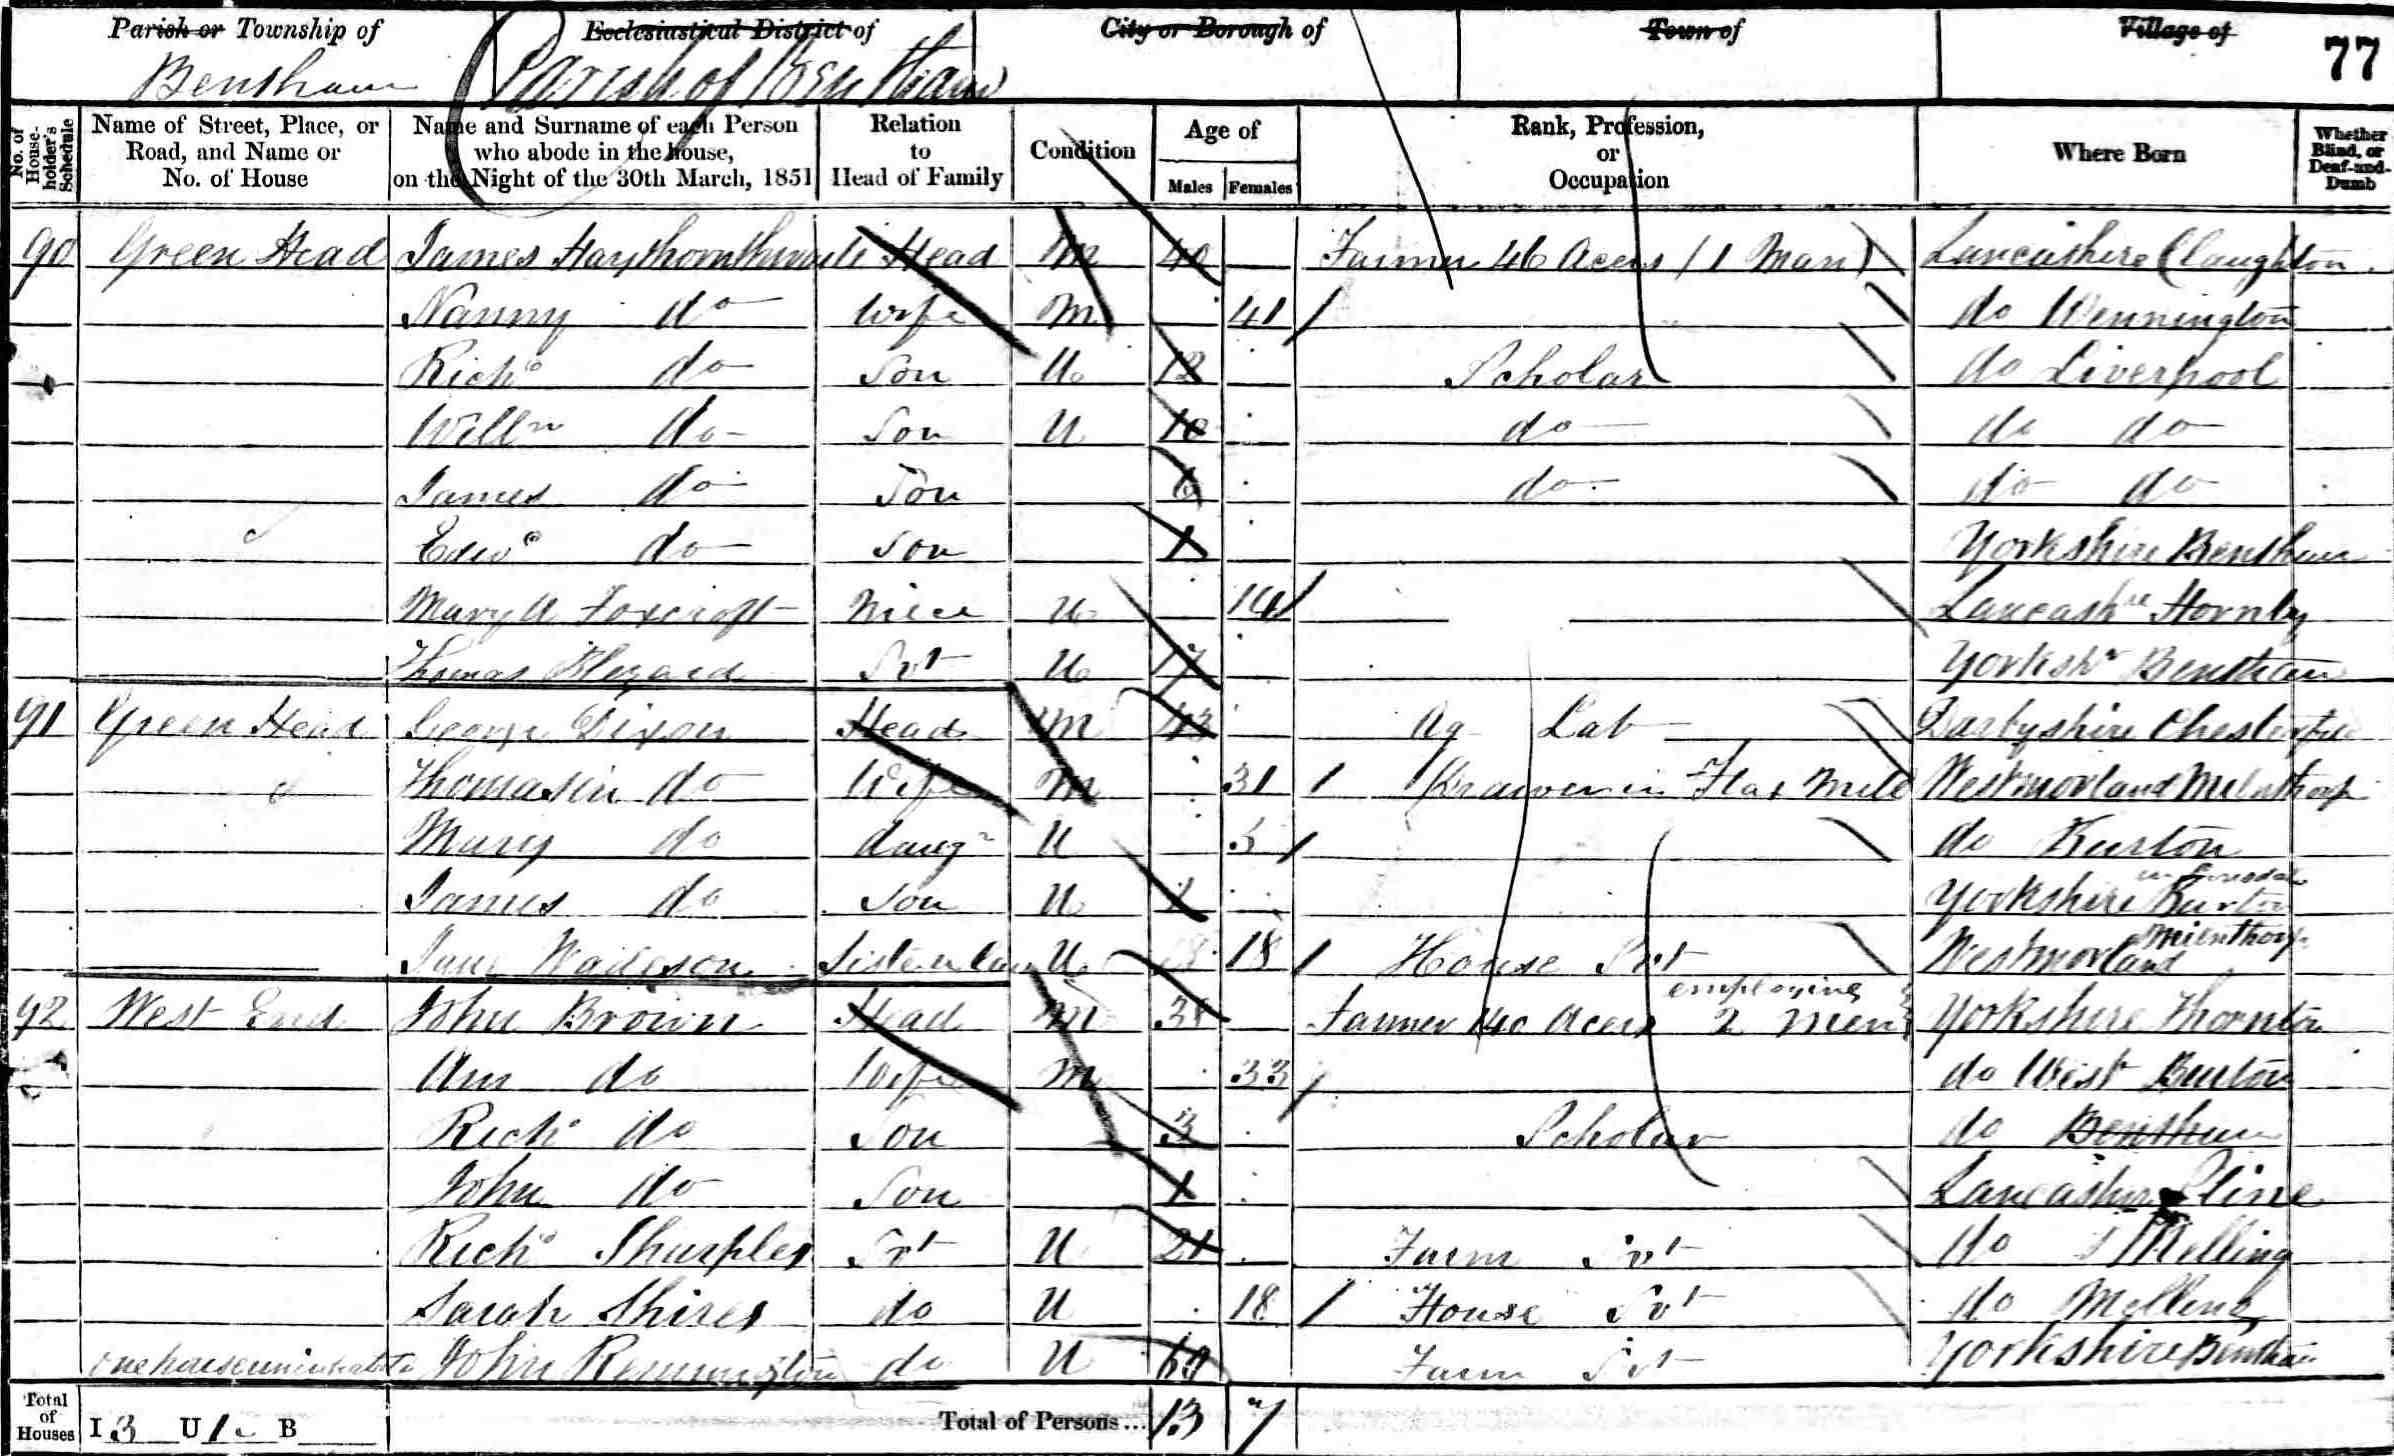 Parish or Township of Ecclesiastical District of City or Borough of Town of Village of 77
Bentham (Parish of Bentham
No. of House-holder's Schedule Name of Street, Place, or Road, and Name or No. of House Name and Surname of each Person who abode in the house, on the Night of the 30th March, 1851 Relation to Head of Family Condition Age of Males Females Rank, Profession, or Occupation Where Born Whether Blind, or Deaf-and-Dumb
90 Green Head James Haythornthwaite Head M 40 Farmer 46 Acers (1 Man) Lancashire Claughton
Nanny do Wife M 41 do Wennington
Richd do Son U 12 Scholar do Liverpool
Willm do Son U 10 do do do
James do Son 6 do do do
Edwd do Son 1 Yorkshire Bentham
Mary A Foxcroft Niece U 14 Lancashre Hornby
Thomas Blezard Svt U 17 Yorkshr Bentham
91 Green Head George Dixon Head M 43 Ag Lab Darbyshire Chesterfield
Thomasin do Wife M 31 Drawer in Flax Mill Westmorland Milnthorp
Mary do daugr U 5 do Burton
James do Son U 1 Yorkshire Burton in Lonsdale
Jane Wadeson Sister in law U 18 House Svt Westmorland Milnthorp
92 West End John Brown Head M 38 Farmer 140 Acers employing 2 Men Yorkshire Thornton
Ann do Wife M 33 do West Burton
Richd do Son 3 Scholar do Bentham
John do Son 1 Lancashire
Richd Sharples Svt U 21 Farm Svt do Melling
Sarah Shires do U 18 House Svt do Melling
One house uninhabited John Remmington do U 69 Farm Svt Yorkshire Bentham
Total of Houses I 3 U 1 B Total of Persons... 13 7